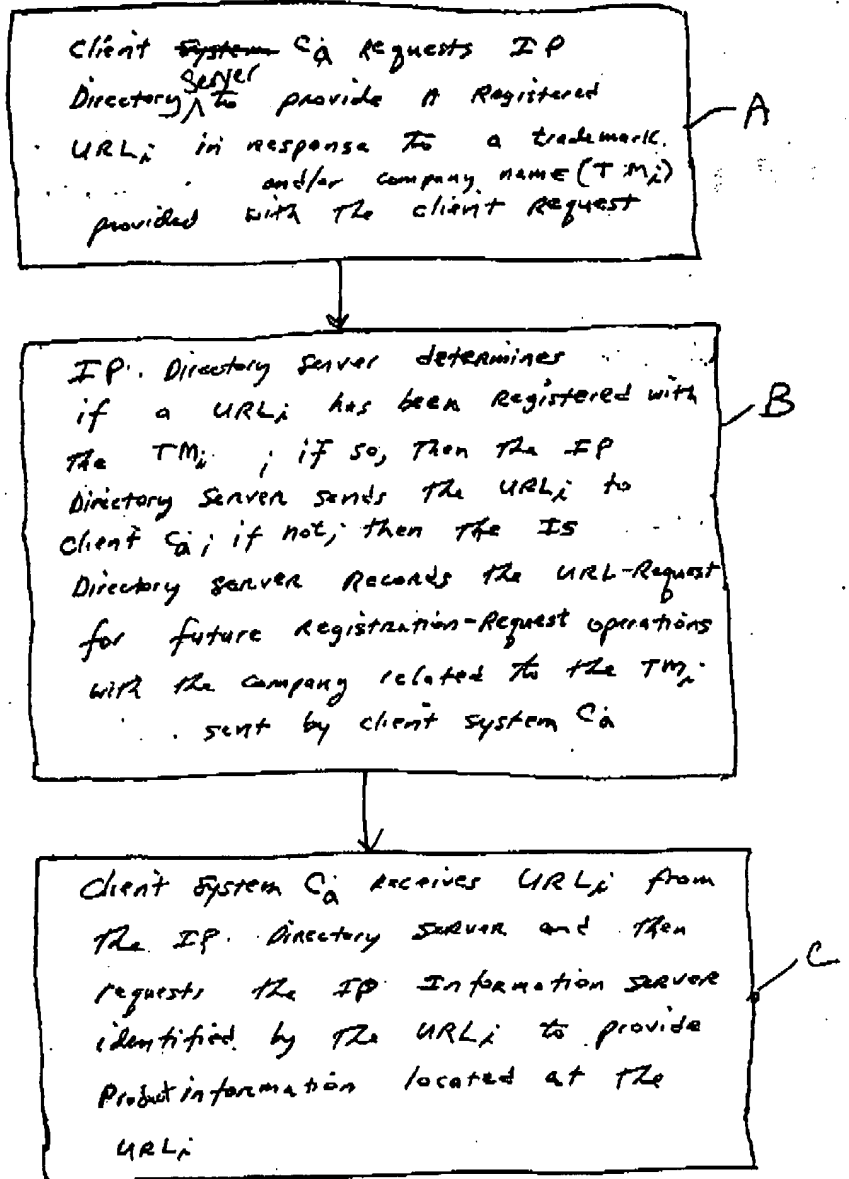 Client System Ca Requests IP
Directory Server to provide A Registered
URLi in response to a trademark
and/or company name (TMi)
provided with the client Request
A
IP. Directory Server determines
if a URLi has been Registered with
the TMi ; if so, then the IP
Directory Server sends the URLi to
client Ca; if not, then the IS
Directory server Records the URL-Request
for future Registration-Request operations
with the company related to the TMi
sent by client system Ca
B
Client System Ca Receives URLi from
the IP. Directory Server and then
requests the IP Information Server
identified by the URLi to provide
Product information located at the
URLi
C